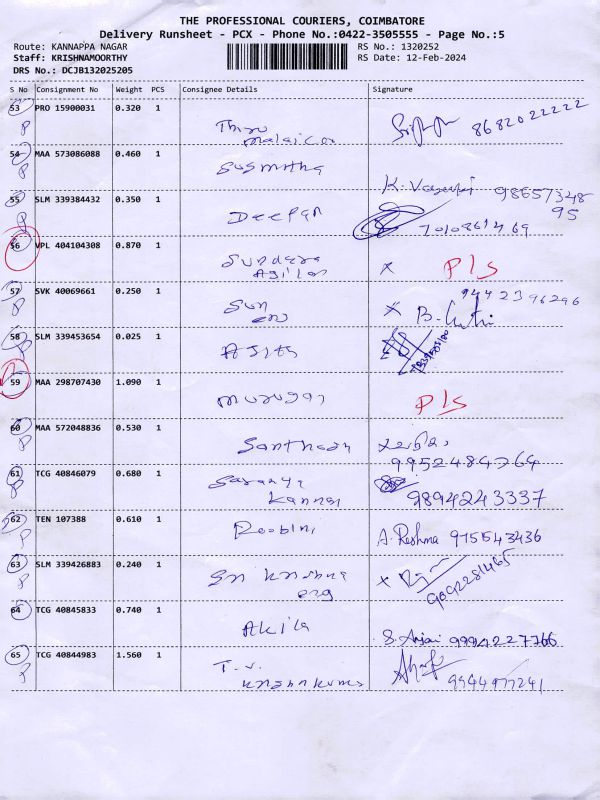 THE PROFESSIONAL COURIERS, COIMBATORE
Delivery Runsheet - PCX - Phone No.:0422-3505555 - Page No.:5
Route: KANNAPPA NAGAR RS No.: 1320252
Staff: KRISHNAMOORTHY RS Date: 12-Feb-2024
DRS No.: DCJB132025205
S No Consignment No Weight PCS Consignee Details Signature
53 PRO 15900031 0.320 1 8682022222
P malai
54 MAA 573086088 0.460 1 Susmitha
P K. 98657348
55 SLM 339384432 0.350 1 Deepan 95
P
56 VPL 404104308 0.870 1 Sundara
Agilan x Pls
57 SVK 40069661 0.250 1 Sun 9442396296
P x B.
58 SLM 339453654 0.025 1 Ajith
P
59 MAA 298707430 1.090 1 murugan Pls
60 MAA 572048836 0.530 1 Santhosh
P 9952484764
61 TCG 40846079 0.680 1 Saranya
P Kannan 9894243337
62 TEN 107388 0.610 1 Roobini A. Reshma 915543436
P
63 SLM 339426883 0.240 1 Sri Krishna x
P org 9092251465
64 TCG 40845833 0.740 1 Akila
P S. Anjai 9994227766
65 TCG 40844983 1.560 1 T.V.
P 9944977241